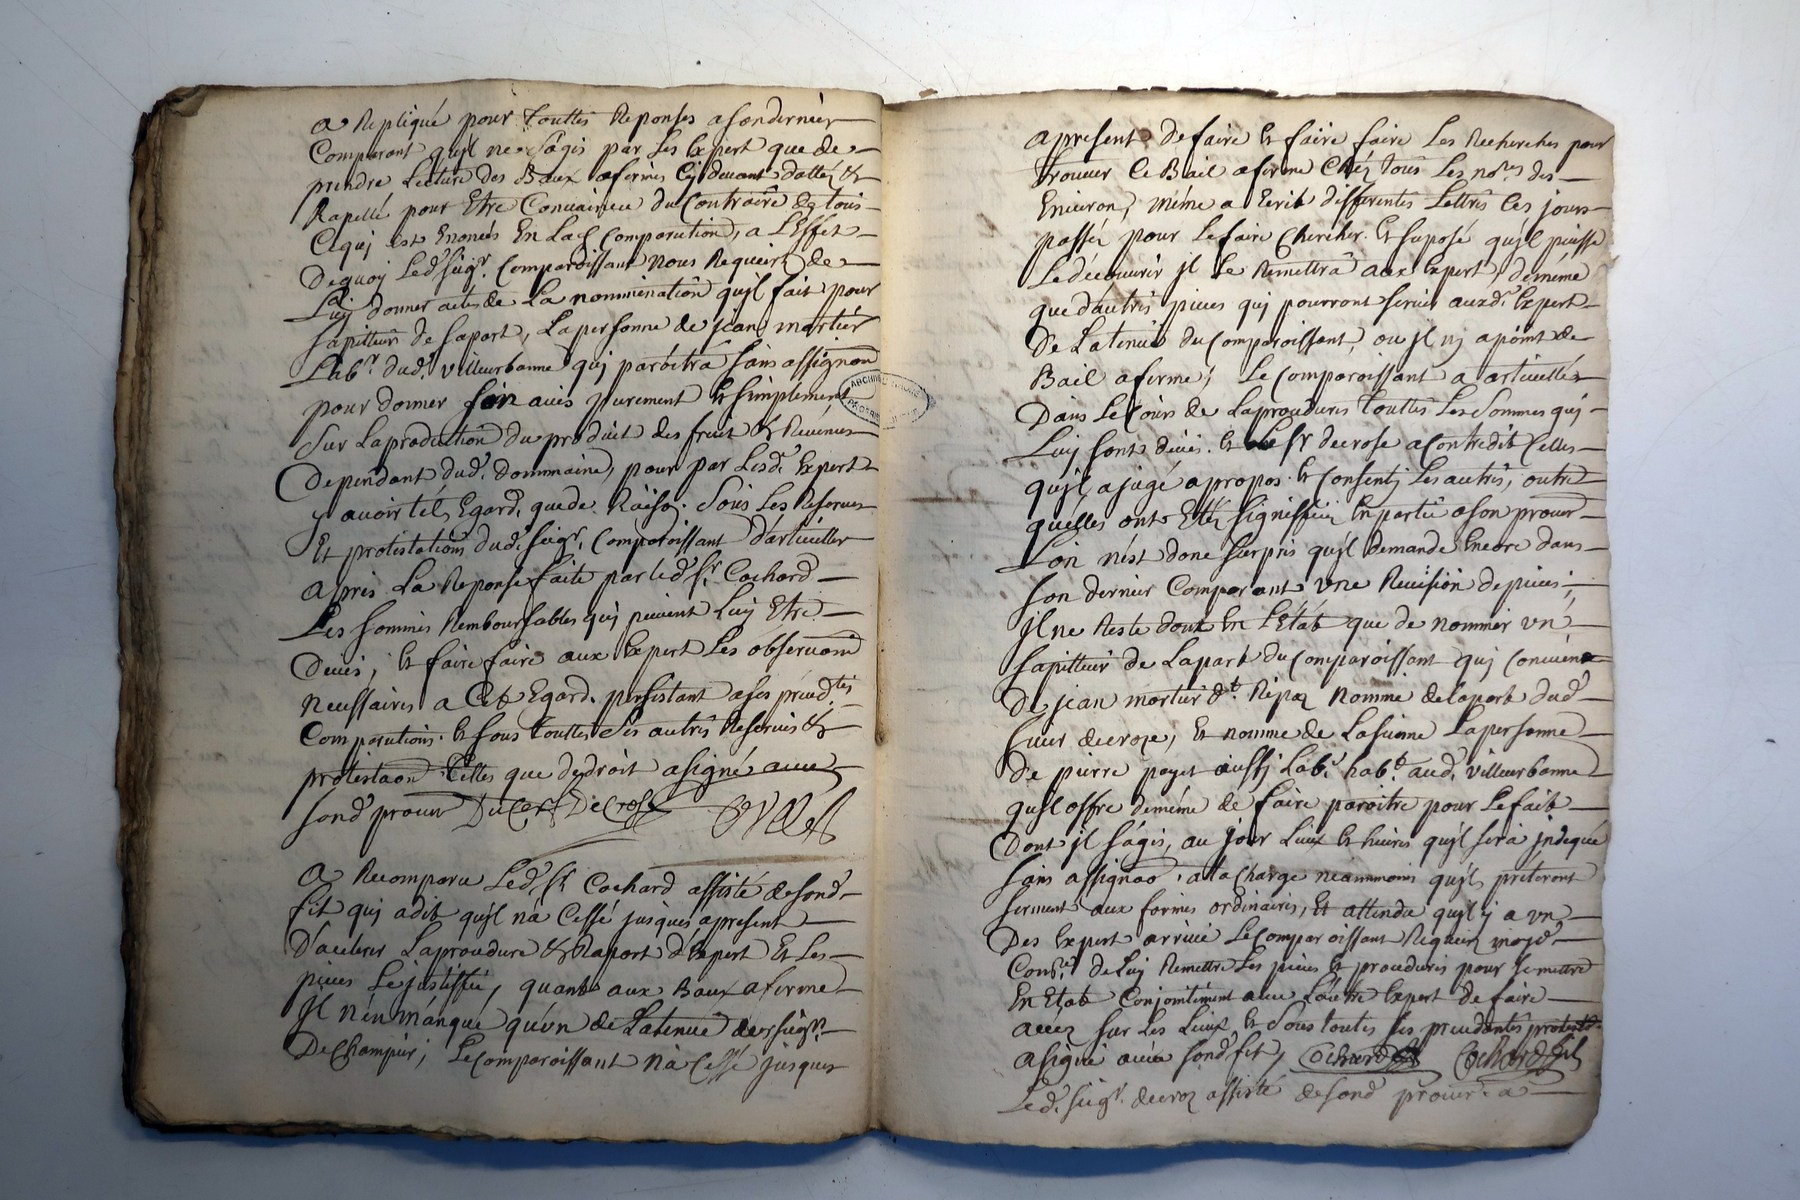 a Repliqué pour touttes Reponses a son dernier
Comparant quil ne sâgis par Les Expert que de
prendre Lecture des Baux afermes Cy devant dattéz &
Rapellé pour Etre Convaincu du Contraire de tous
Ce qui est Enoncés En Lad Comparution, a L'Effet
De quoy Led.t seigr. Comparoissant nous Requiert de
Luy donner acte de La nommination quil fait pour
sapitteur de sa part, La personne de jean mortier
Lab.r dud. villeurbanne qui paroîtra sans assignaon
pour donner son avis purement & simplement
sur La production du produit des fruit & Revenus
Dependant dud. Dommaine, pour par Lesd. Expert
y avoir tél Egard, que de Raison. Sous Les Reserves
Et protestations dud. seigr. Comparoissant D'articuller
apres La Reponse faite par led. sr. Cochard
Les sommes Remboursables qui peuvent Luy Etre
Deues, & faire faire aux Expert Les observaons
necessaires a Cet Egard. persistant a ses preced.tes
Comparutions. & sous touttes ses autres Reserves &
protestaon telles que de droit a signé avec
sond. procur DuCest DeCroze
a Recomparu Led. sr. Cochard assisté de sond.
fit qui a dit quil nâ Cessé jusques apresent
Laproudure & Raport d'Expert Et Les
pieces Le justiffie, quant aux Baux aferme
Il n'én mánque qu'ún de La tenue du seigr.
De Champier; Le Comparoissant Nâ Cessé jusques
apresent de faire & faire faire Les Recherches pour
trouver Ce Bail aferme Chéz tous Les no.res des
Environ, même a Ecrit differentes Lettres Ces jours
passéz pour Le faire Chercher. & suposé quil puisse
Le découvrir jl Le Remettrâ aux Expert, de même
que d'autres pieces qui pourront servir auxd. Expert
De La tenue du Comparoissant, ou jl ny a point de
Bail aferme; Le Comparoissant a articullés
Dans Le Cours de La proudures touttes Les sommes qui
Luy sont dües. & Le sr decrose a Contredit Celles
quil a jugé a propos. & Consenty Les autres, outre
quélles ont Etéz signiffiéz En partie a son procur
L'on n'ést donc surpris quil demande Encore dans
son dernier Comparant une Revision de pieces;
Jl ne Reste dont En L'Etát que de nommer un
sapitteur de La part du Comparoissant qui Convient
De jean mortier nommé de La part dud.
sieur decroze, Et nomme de La sienne La personne
De pierre payet aussy Lab.r hab.t aud. villeurbanne
quil offre de même de faire paroitre pour Le fait
Dont jl s'ágis, au jour Lieux & heures quil sera jndiqué
sans assignaon. a La Charge neammoins quils préteront
serment aux formes ordinaires, Et attendu quil y a un
Des Expert arrivé Le Comparoissant Requier
Cons.er de Luy Remettre Les pieces & proudures pour se mettre
En Etat Conjointément avec L'autre Expert de faire
accéz sur Les Lieux, & sous toutes ses precedantes
a signé avec sond. fit, Cochard Cochard fils
Led. seigr. decroz assisté de sond. procur. a